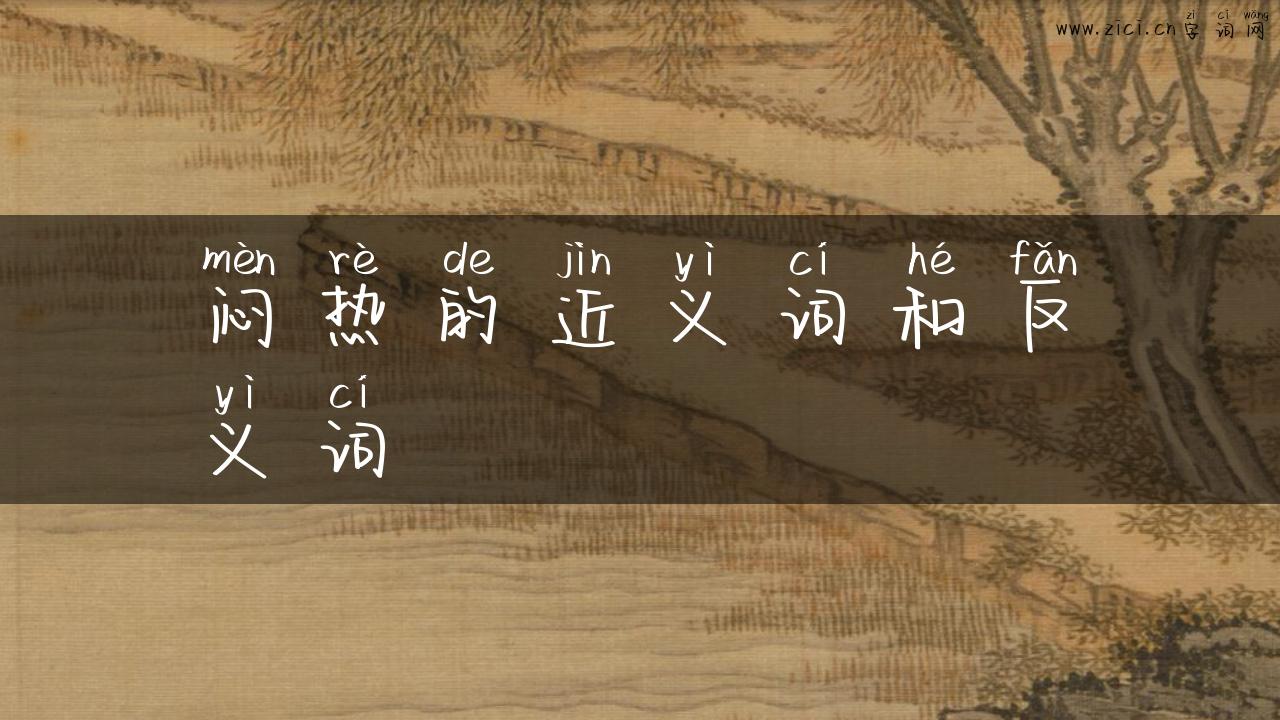 zì cí wǎng
www.zici.cn字词网
mèn rè de jìn yì cí hé fǎn
闷热的近义词和反
yì cí
义词